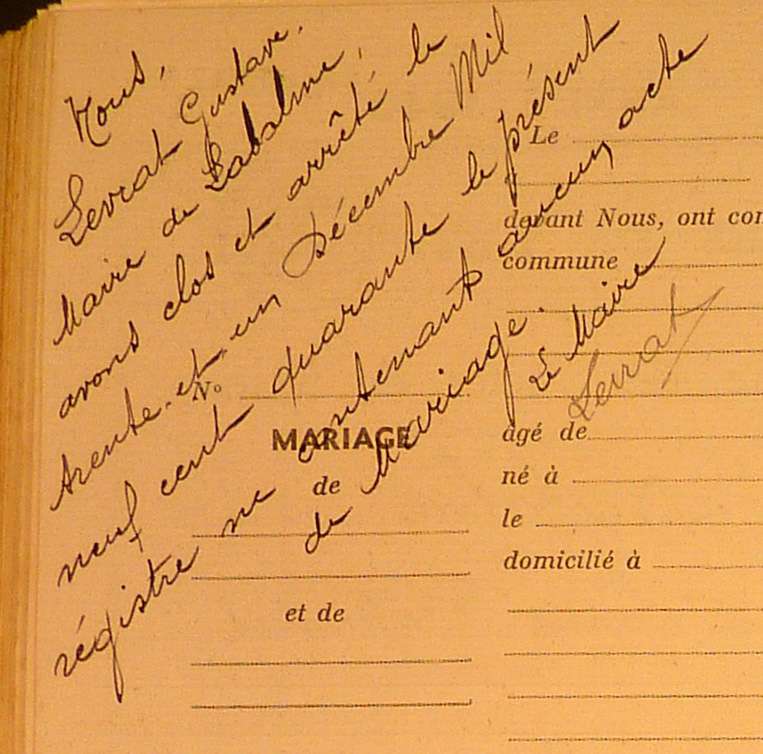 Nous,
Levrat Gustave,
Maire de Labalme,
avons clos et arrêté le
trente-et-un Décembre Mil
neuf cent quarante le présent
régistre ne contenant aucun acte
de Mariage.
Le Maire
Levrat
Nº
MARIAGE
de
et de
Le
devant Nous, ont com
commune
âgé de
né à
le
domicilié à